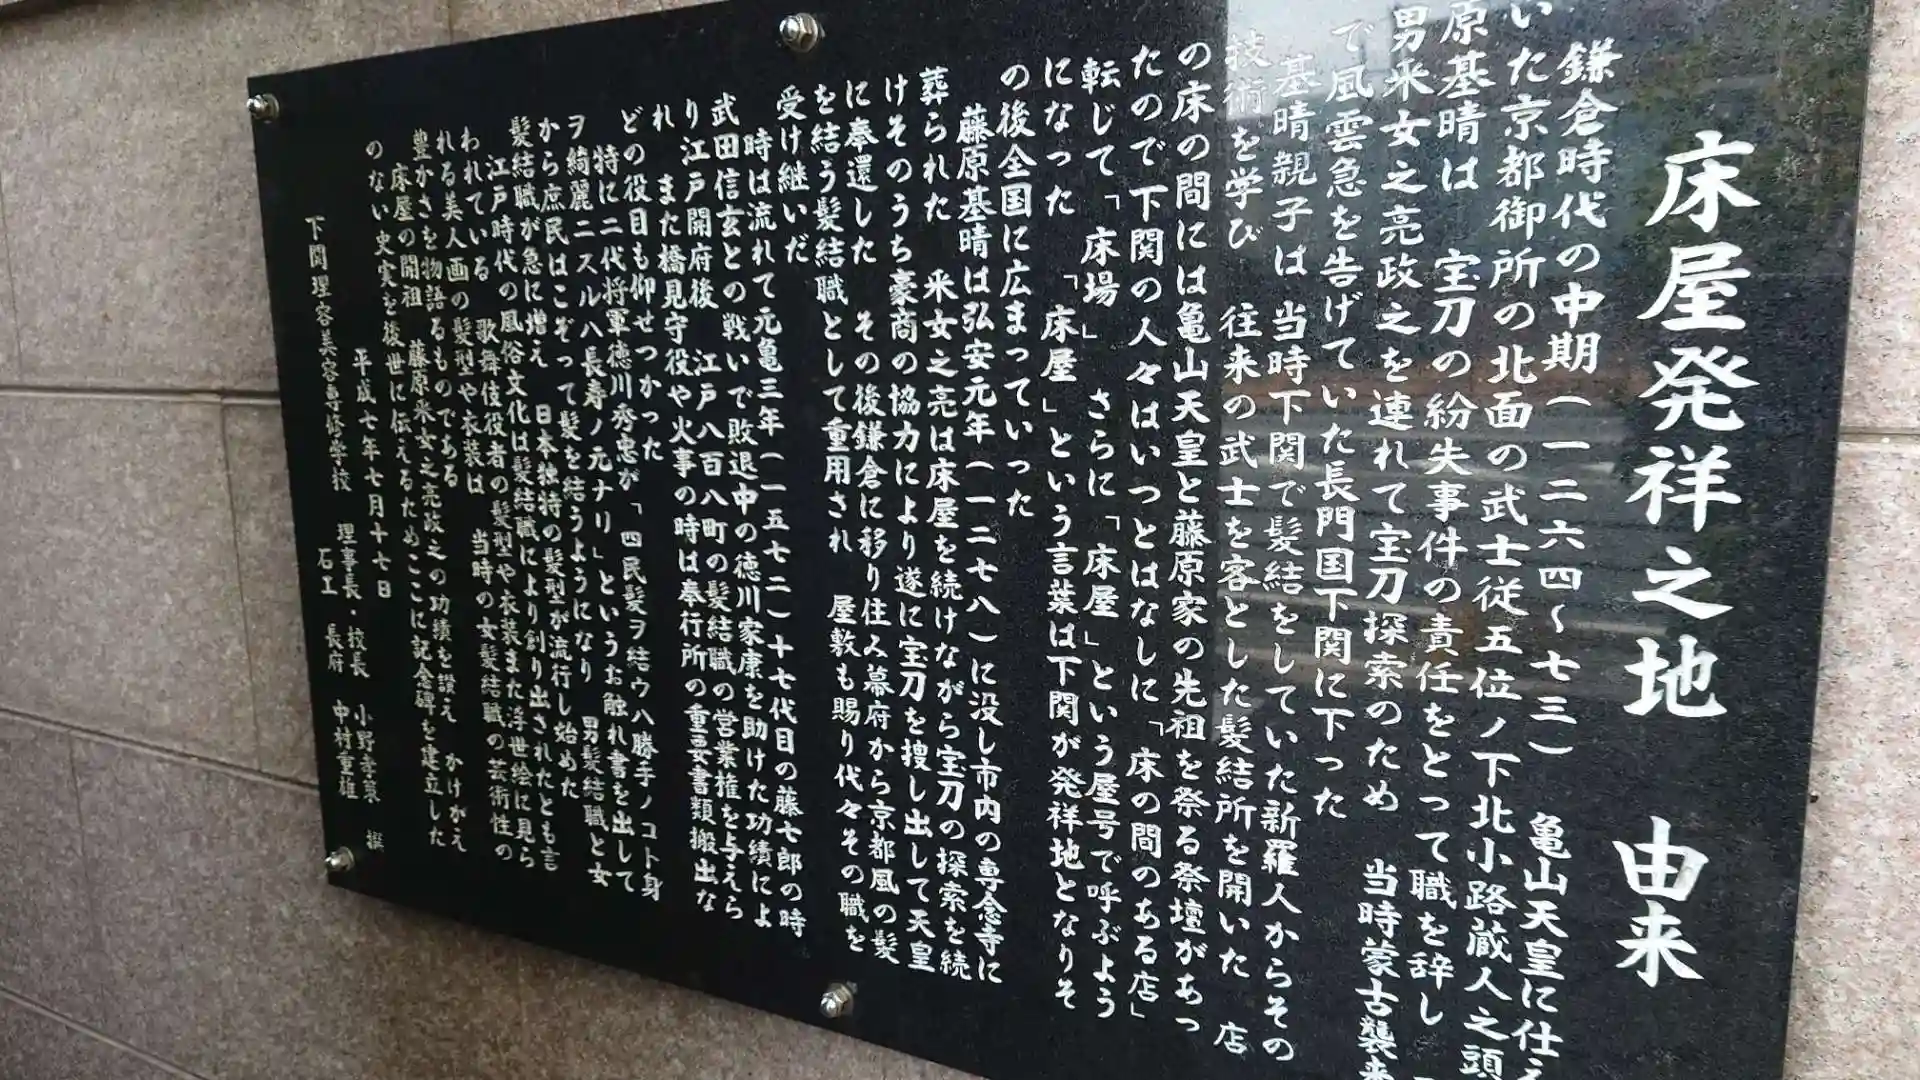 床屋発祥之地　由来
鎌倉時代の中期(一二六四～七三)　亀山天皇に仕え
いた京都御所の北面の武士従五位ノ下北小路蔵人之頭
原基晴は　宝刀の紛失事件の責任をとって職を辞し
男采女之亮政之を連れて宝刀探索のため　当時蒙古襲来
で風雲急を告げていた長門国下関に下った
基晴親子は　当時下関で髪結をしていた新羅人からその
技術を学び　往来の武士を客とした髪結所を開いた　店
の床の間には亀山天皇と藤原家の先祖を祭る祭壇があっ
たので下関の人々はいつとはなしに「床の間のある店」
転じて「床場」　さらに「床屋」という屋号で呼ぶよう
になった　「床屋」という言葉は下関が発祥地となりそ
の後全国に広まっていった
藤原基晴は弘安元年(一二七八)に没し市内の専念寺に
葬られた　采女之亮は床屋を続けながら宝刀の探索を続
けそのうち豪商の協力により遂に宝刀を捜し出して天皇
に奉還した　その後鎌倉に移り住み幕府から京都風の髪
を結う髪結職として重用され　屋敷も賜り代々その職を
受け継いだ
時は流れて元亀三年(一五七二)十七代目の藤七郎の時
武田信玄との戦いで敗退中の徳川家康を助けた功績によ
り江戸開府後　江戸八百八町の髪結職の営業権を与えら
れ　また橋見守役や火事の時は奉行所の重要書類搬出な
どの役目も仰せつかった
特に二代将軍徳川秀忠が「四民髪ヲ結ウハ勝手ノコト身
ヲ綺麗ニスルハ長寿ノ元ナリ」というお触れ書を出して
から庶民はこぞって髪を結うようになり　男髪結職と女
髪結職が急に増え　日本独特の髪型が流行し始めた
江戸時代の風俗文化は髪結職により創り出されたとも言
われている　歌舞伎役者の髪型や衣装また浮世絵に見ら
れる美人画の髪型や衣装は　当時の女髪結職の芸術性の
豊かさを物語るものである
床屋の開祖　藤原采女之亮政之の功績を讃え　かけがえ
のない史実を後世に伝えるためここに記念碑を建立した
平成七年七月十七日
下関理容美容専修学校　理事長・校長　小野孝策　撰
石工　長府　中村重雄